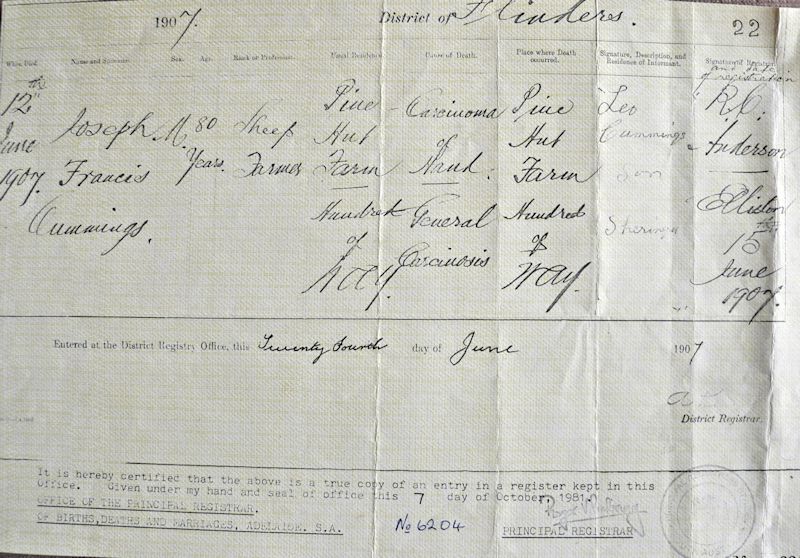 1907. District of Flinders.
22
When Died. Name and Surname. Sex. Age. Rank or Profession. Usual Residence. Cause of Death. Place where Death occurred. Signature, Description, and Residence of Informant. Signature of Registrar and date of registration
12th June 1907.
Joseph Francis Cummings.
M.
80 Years.
Sheep Farmer
Pine Hut Farm Hundred of Way.
Carcinoma of Hand: General Carcinosis
Pine Hut Farm Hundred of Way.
Leo Cummings son Sheringa
R.C. Anderson Elliston 15th June 1907.
Entered at the District Registry Office, this Twenty Fourth day of June 1907
District Registrar.
It is hereby certified that the above is a true copy of an entry in a register kept in this
Office. Given under my hand and seal of office this 7 day of October, 1981.
OFFICE OF THE PRINCIPAL REGISTRAR.
OF BIRTHS, DEATHS AND MARRIAGES, ADELAIDE. S.A.
No 6204
PRINCIPAL REGISTRAR